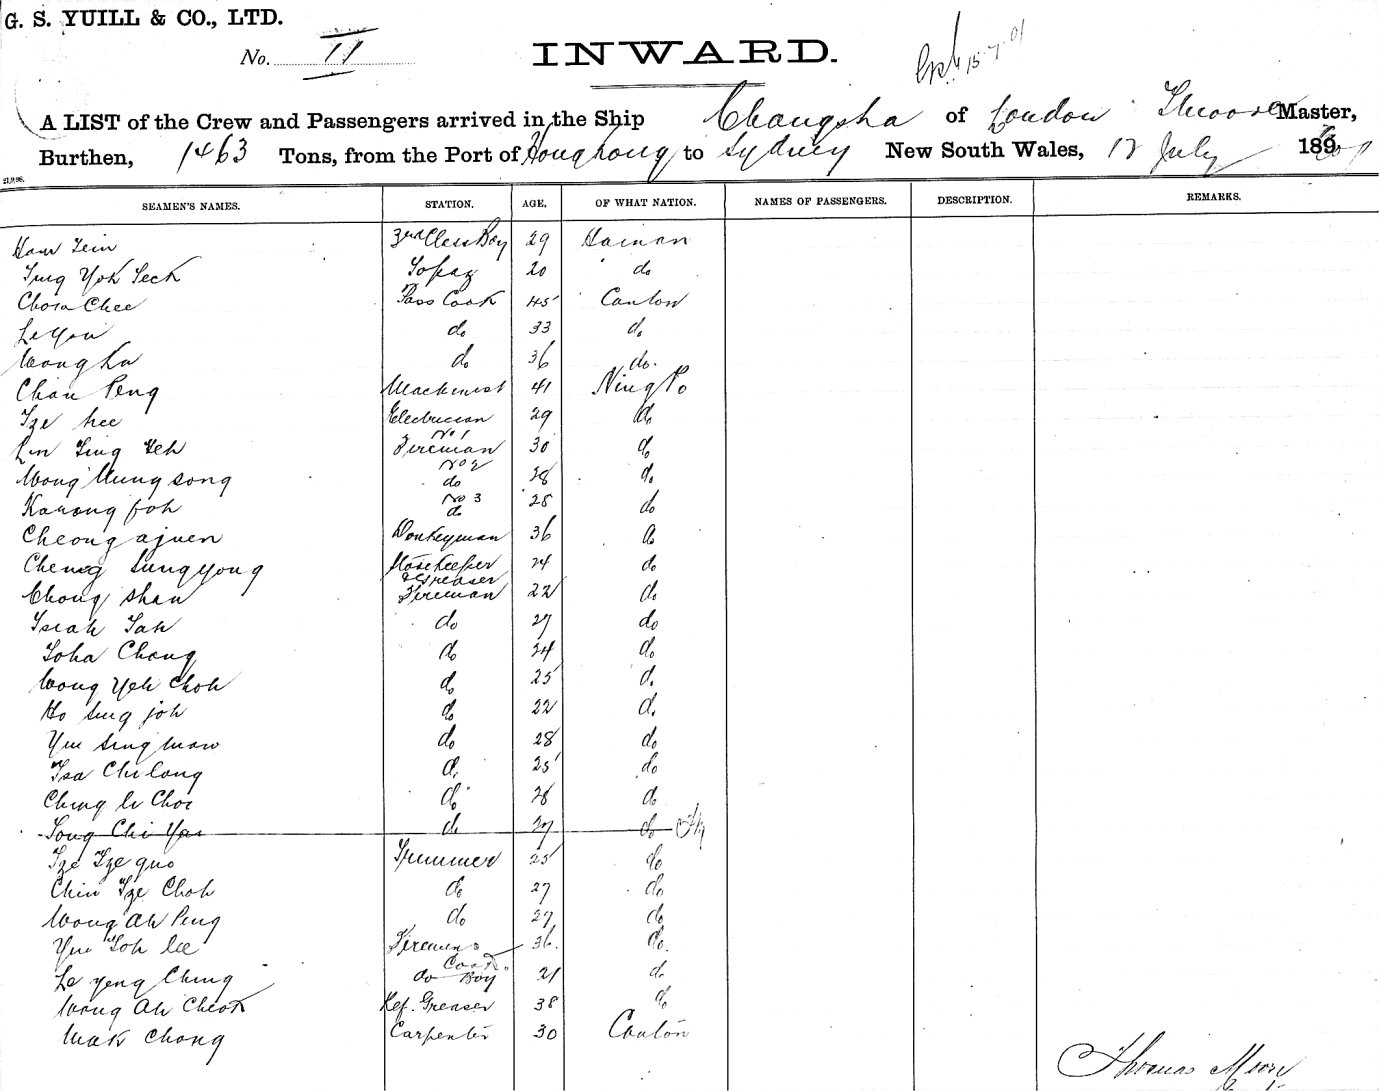 G. S. YUILL & CO., LTD.
No. 11
INWARD.
15-7-01
A LIST of the Crew and Passengers arrived in the Ship Changsha of London T Moore Master,
Burthen, 1463 Tons, from the Port of Hong Kong to Sydney New South Wales, 12 July 189
21.9.98.
SEAMEN'S NAMES. STATION. AGE. OF WHAT NATION. NAMES OF PASSENGERS. DESCRIPTION. REMARKS.
3rd Class Boy 29 Hainan
Ting Yok Seck Topaz 20 do
Chow Chee Pass Cook 45 Canton
Le You do 33 do
Wong Ka do 36 do.
Chan Peng Machinist 41 Ning Po
Tze hee Electrician 29 do
Lin Ting Yeh No 1 Fireman 30 do
Wong Mung song No 2 do 28 do
Kawong foh No 3 do 28 do
Cheong ajuen Donkeyman 36 do
Cheng Sung yong Storekeeper 24 do
Chong Shan & Greaser Fireman 22 do
Tsiah Tah do 27 do
Toha Chong do 24 do
Wong Yeh Choh do 25 do
Ho Sing joh do 22 do
Yiu Sing mow do 28 do
Tsa Chi long do 25 do
Ching le Choi do 28 do
Tong Chi Yai do 27 do
Tze Tze quo Trimmer 25 do
Chin Tze Choh do 27 do
Wong Ah Peng do 27 do
Yiu Toh lee Firemens Cook 36. do.
Le yeng Ching do Boy 21 do
Wong Ah Cheok Ref. Greaser 38 do
Mak Chong Carpenter 30 Canton
Thomas Moore